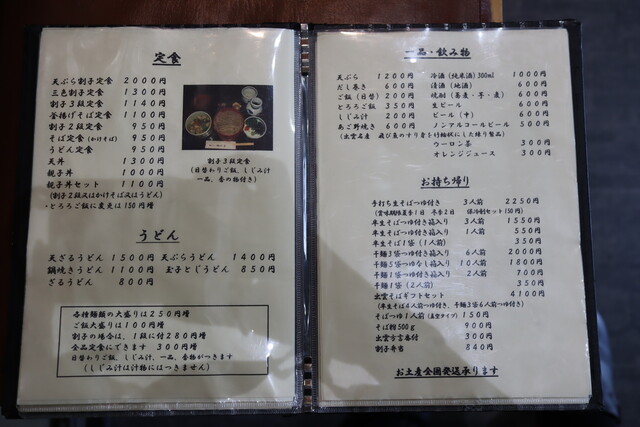 定食
天ぷら割子定食 2000円
三色割子定食 1300円
割子3段定食 1140円
釜揚げそば定食 1100円
割子2段定食 950円
そば定食(かけそば) 950円
うどん定食 950円
天丼 1300円
親子丼 1000円
親子丼セット 1100円
(割子2段又はかけそば又はうどん)
・とろろご飯に変更は150円増
割子3段定食
(日替わりご飯、しじみ汁
一品、香の物付き)
うどん
天ざるうどん 1500円 天ぷらうどん 1400円
鍋焼きうどん 1100円 玉子とじうどん 850円
ざるうどん 800円
各種麺類の大盛りは250円増
ご飯大盛りは100円増
割子の場合は、1段に付280円増
全品定食にできます 300円増
日替わりご飯、しじみ汁、一品、香物がつきます
(しじみ汁は汁物にはつきません)
一品・飲み物
天ぷら 1200円 冷酒(純米酒)300ml 1000円
だし巻き 600円 清酒(地酒) 600円
ご飯(日替) 200円 焼酎(蕎麦・芋・麦) 600円
とろろご飯 350円 生ビール 600円
しじみ汁 200円 ビール(中) 600円
あご野焼き 600円 ノンアルコールビール 500円
(出雲名産 飛び魚のすり身を竹輪状にした練り製品)
ウーロン茶 300円
オレンジジュース 300円
お持ち帰り
手打ち生そばつゆ付き 3人前 2250円
(賞味期限夏季1日 冬季2日 保冷剤セット150円)
半生そばつゆ付き箱入り 3人前 1550円
半生そばつゆ付き箱入り 1人前 550円
半生そば1袋(1人前) 350円
干麺3袋つゆ付き箱入り 6人前 2000円
干麺5袋つゆなし箱入り 10人前 1800円
干麺1袋つゆ付き箱入り 2人前 700円
干麺1袋(2人前) 350円
出雲そばギフトセット 4100円
(半生そば4人前つゆ付き、干麺3袋6人前つゆ付き)
そばつゆ1人前(真空タイプ) 150円
そば粉500g 900円
出雲方言番付 300円
割子弁当 840円
お土産全国発送承ります